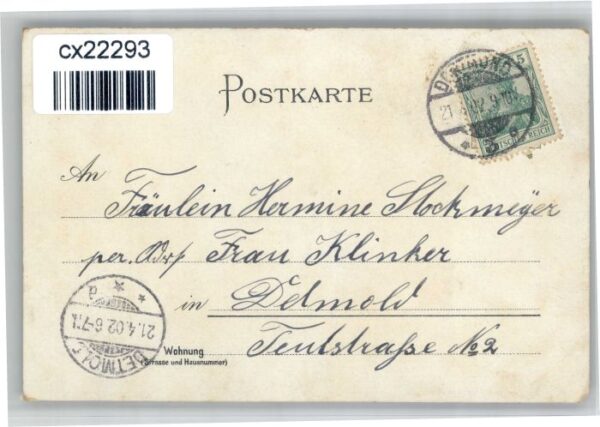 cx22293
POSTKARTE
DORTMUND
21.4.02.9-10V
5
DEUTSCHES REICH
An
Fräulein Hermine Stockmeyer
per. Adr. Frau Klinker
in Detmold
Wohnung
(Strasse und Hausnummer)
Teutstraße No 2
DETMOLD
21.4.02.6-7N.
d